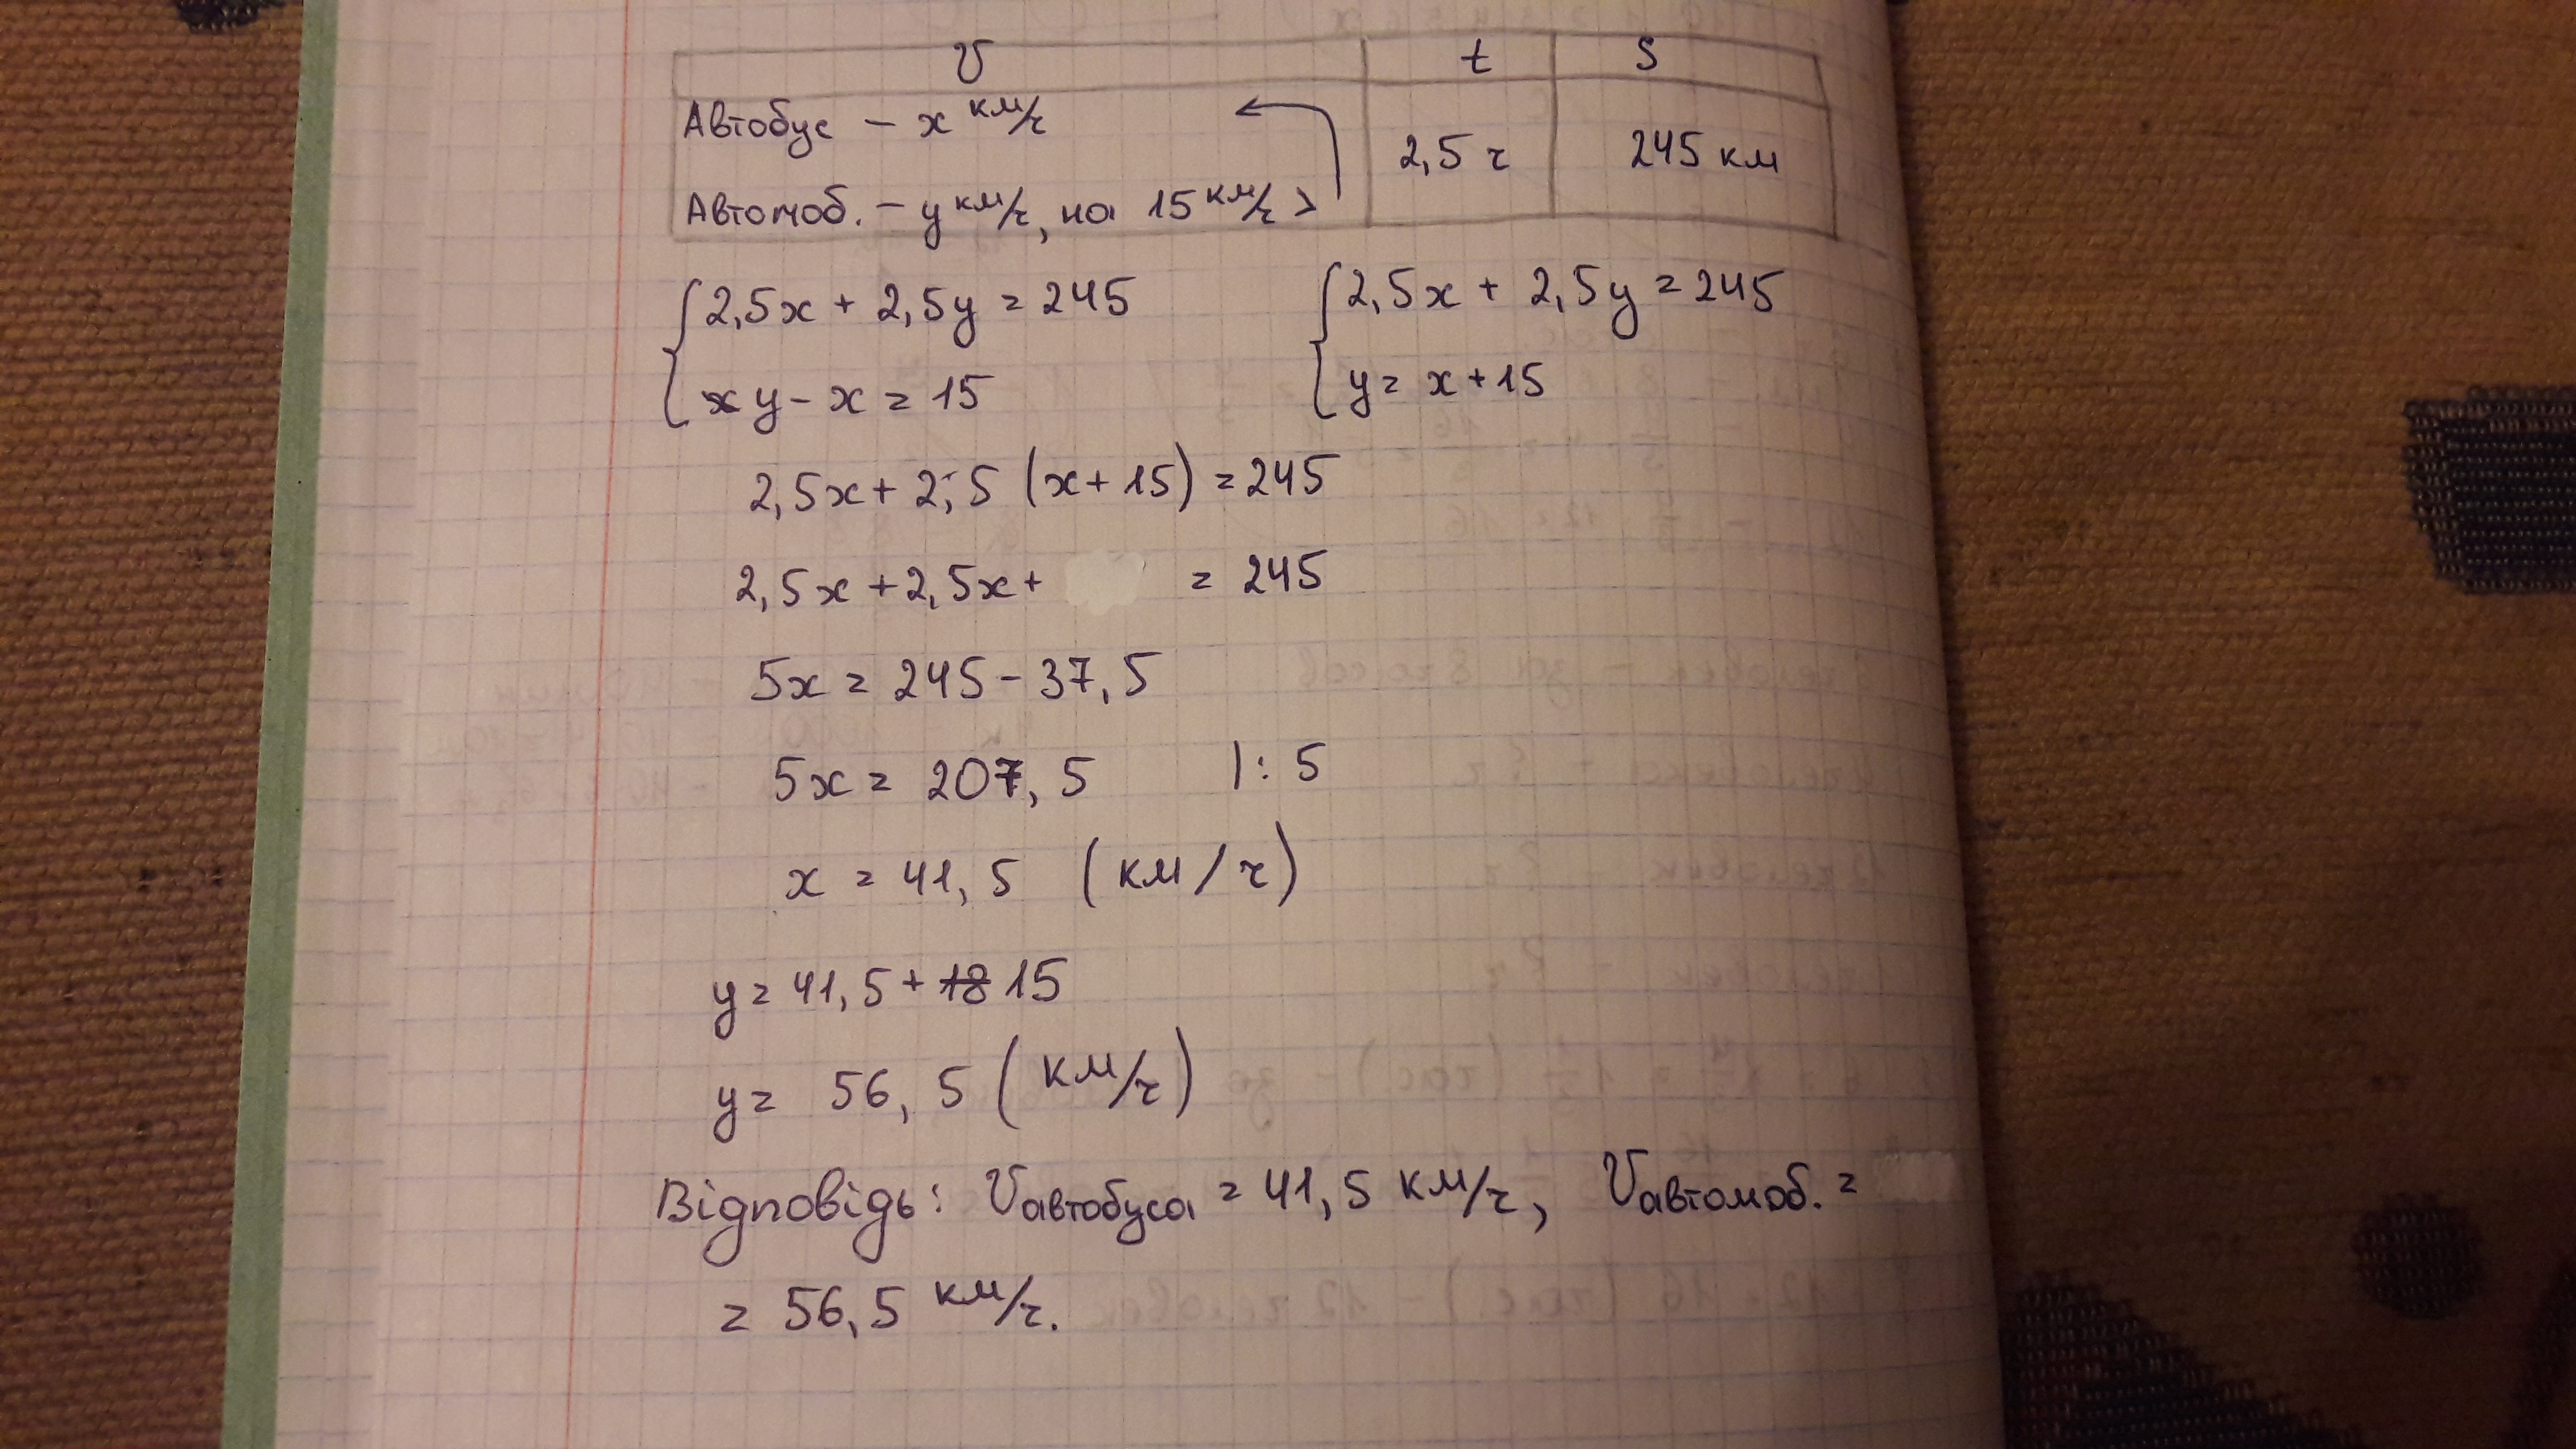 V t S
Автобус – x км/ч
2,5 ч 245 км
Автомоб. – y км/ч, на 15 км/ч >
{2,5x + 2,5y = 245 {2,5x + 2,5y = 245
y – x = 15 y = x + 15
2,5x + 2,5 (x + 15) = 245
2,5x + 2,5x + = 245
5x = 245 – 37,5
5x = 207,5 |: 5
x = 41,5 (км/ч)
y = 41,5 + 18 15
y = 56,5 (км/ч)
Відповідь: Vавтобуса = 41,5 км/ч, Vавтомоб. =
= 56,5 км/ч.